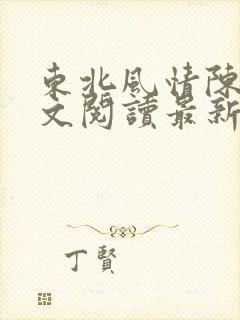 東北風情陳
文閱讀最新
丁賢